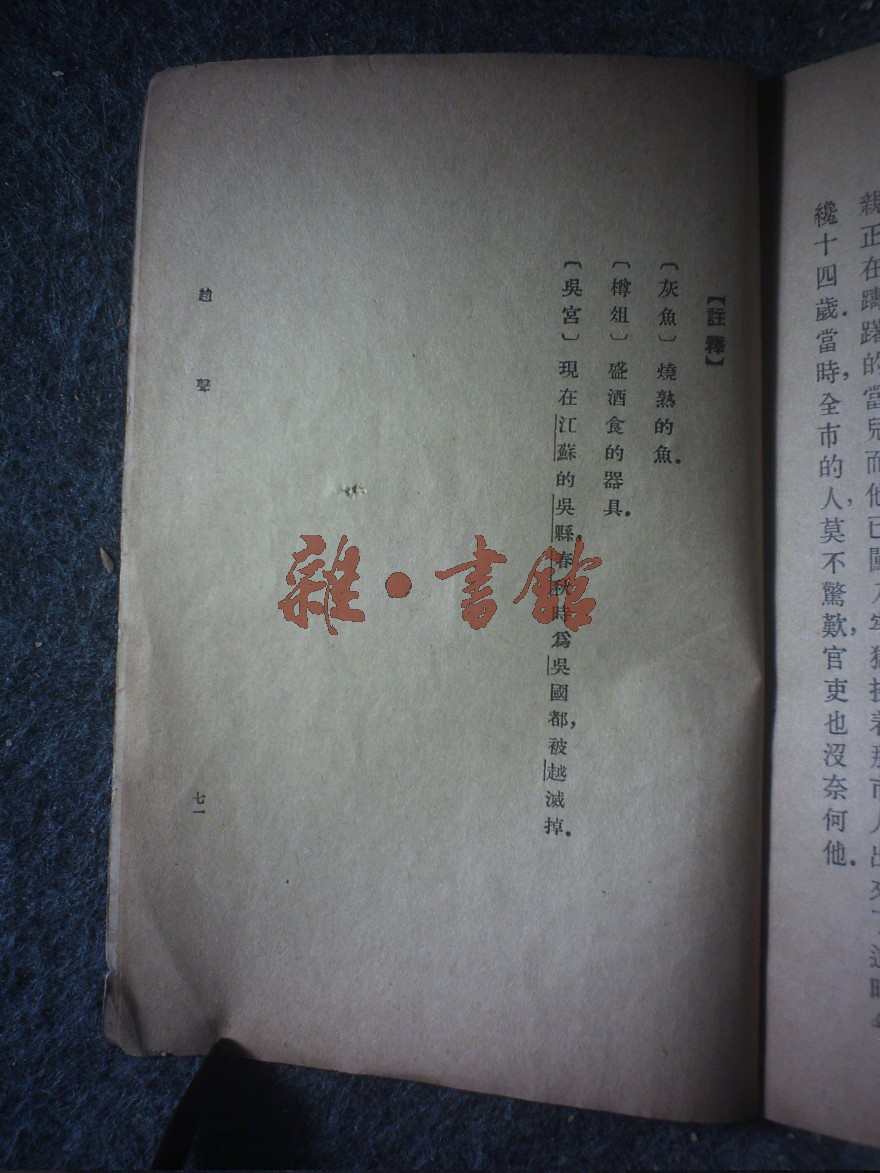 親正在躊躇的當兒,而他已闖入牢獄,扶着那市人出來了.這時
纔十四歲.當時,全市的人,莫不驚歎,官吏也沒奈何他.
【註釋】
〔灰魚〕燒熟的魚.
〔樽俎〕盛酒食的器具.
〔吳宮〕現在江蘇的吳縣.春秋時爲吳國都,被越滅掉.
趙聲
七一
雜·書館